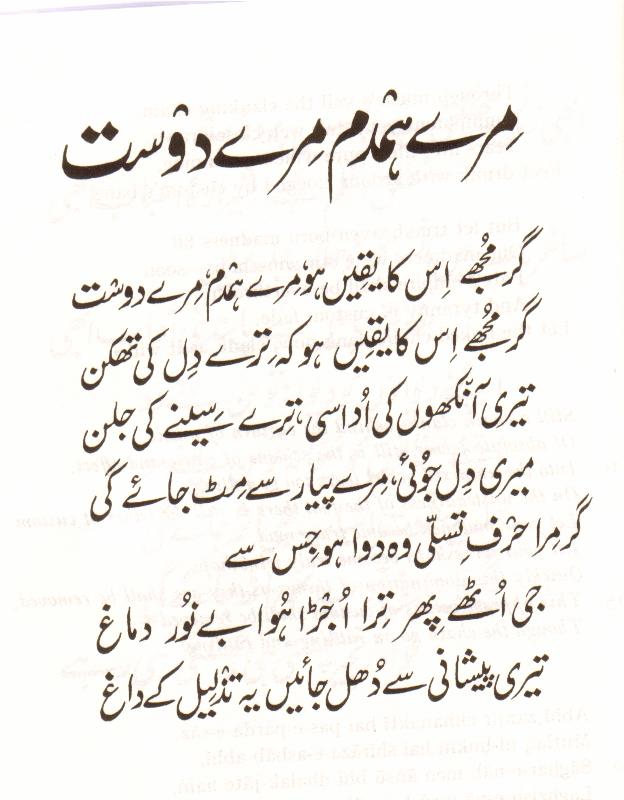 مِرے ہمدم مِرے دوست
گر مُجھے اِس کا یقیں ہو، مِرے ہمدم، مِرے دوست
گر مُجھے اِس کا یقیں ہو کہ تِرے دِل کی تھکن
تیری آنکھوں کی اُداسی، تِرے سِینے کی جلن
میری دِل جُوئی، مِرے پیار سے مِٹ جائے گی
گر مِرا حرفِ تسلّی وہ دوا ہو جِس سے
جی اُٹھے پھر تِرا اُجڑا ہُوا بے نُور دماغ
تیری پیشانی سے دُھل جائیں یہ تذلِیل کے داغ